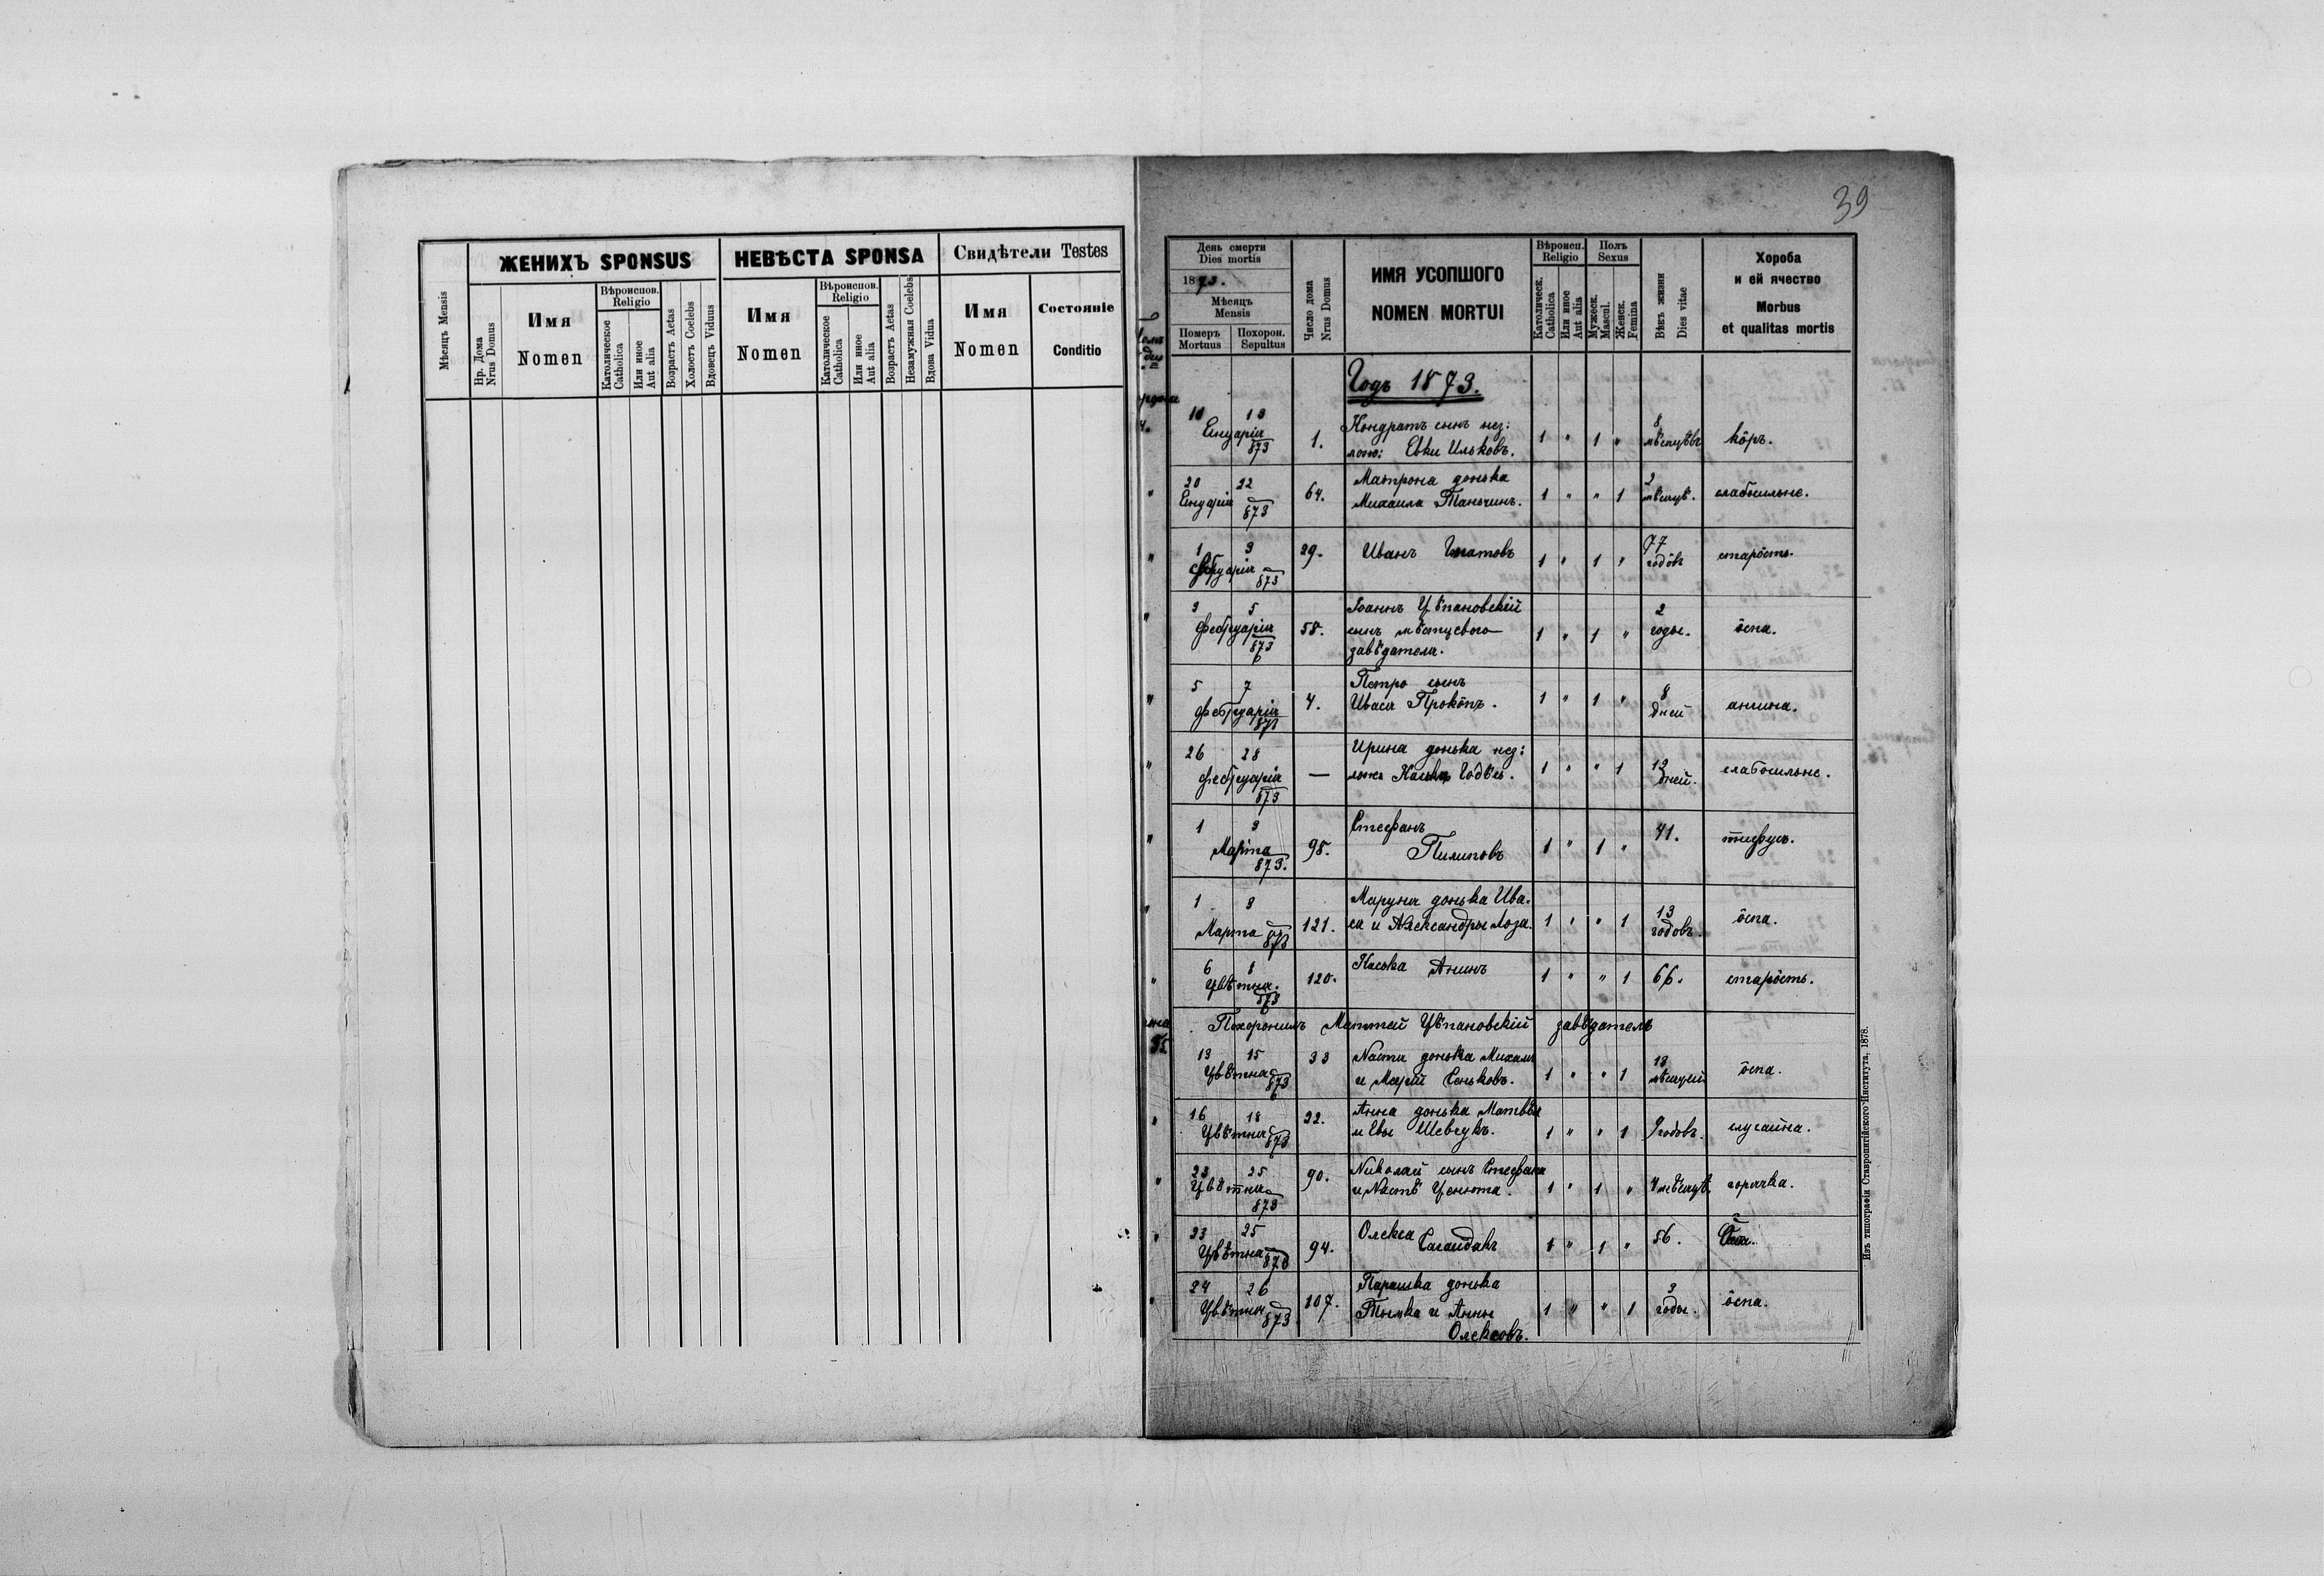 ЖЕНИХЪ SPONSUS
НЕВѢСТА SPONSA
Свидѣтели Testes
Мѣсяцъ Mensis
Нр. Дома Nrus Domus
Имя
Nomen
Вѣроиспов.
Religio
Католическое Catholica
Или иное Aut alia
Возрастъ Aetas
Холостъ Coelebs
Вдовецъ Viduus
Имя
Nomen
Вѣроиспов.
Religio
Католическое Catholica
Или иное Aut alia
Возрастъ Aetas
Незамужная Coelebs
Вдова Vidua
Имя
Nomen
Состояніе
Conditio
39
День смерти
Dies mortis
1873.
Мѣсяцъ
Mensis
Померъ
Mortuus
Похорон.
Sepultus
Число дома
Nrus Domus
ИМЯ УСОПШОГО
NOMEN MORTUI
Вѣроисп.
Religio
Католическ.
Catholica
Или иное
Aut alia
Полъ
Sexus
Мужеск.
Mascul.
Женск.
Femina
Вѣкъ жизни
Dies vitae
Хороба
и ей ячество
Morbus
et qualitas mortis
Годъ 1873.
10 13
Енуарія
873
1.
Кондратъ сынъ нез:
лож: Евки Ильковъ.
1 " 1 "
8
мѣсяцѣвъ
кôръ.
20 22
Енуарія
873
64.
Матрона донька
Михаила Таньчинъ.
1 " " 1
2
мѣсяцѣ.
слабосильне.
1 3
Фебруарія
873
29.
Иванъ Игнатовъ
1 " 1 "
77
годôвъ
старôсть.
3 5
Фебруарія
873
58.
Іоаннъ Цѣпановскій
сынъ мѣстцевого
завѣдателя.
1 " 1 "
2
годы.
ôспа.
5 7
Фебруарія
873
4.
Петро сынъ
Івася Прокôпъ.
1 " 1 "
8
дней
ангина.
26 28
Фебруарія
873
—
Ирина донька нез:
лож. Каськи Годѣсь.
1 " " 1
12
дней.
слабосильне.
1 3
Марта
873.
98.
Стефанъ
Пилиповъ
1 " 1 "
41.
тифусъ.
1 3
Марта
873
121.
Маруня донька Ива-
ся и Александры Лоза.
1 " " 1
13
годовъ.
ôспа.
6 8
Цвѣтня.
873
120.
Каська Анинъ
1 " " 1
66.
старôсть.
Похоронилъ Маттей Цѣпановскій завѣдатель
13 15
Цвѣтня
873
33
Настя донька Михаила
и Маріи Сеньковъ.
1 " " 1
18
мѣсяцей
ôспа.
16 18
Цвѣтня
873
22.
Анна донька Матвѣя
и Евы Шевчукъ.
1 " " 1
9 годовъ.
случайна.
23 25
Цвѣтня
873
90.
Николай сынъ Стефана
и Настѣ Ценюта.
1 " 1 "
4 мѣсяцѣ.
горячка.
23 25
Цвѣтня
873
94.
Олекса
Сагайдакъ
1 " 1 "
56.
24 26
Цвѣтня
873
107.
Парашка донька
Тымка и Анны
Олексовъ.
1 " " 1
3
годы.
ôспа.
Изъ типографіи Ставропигійского Института, 1878.